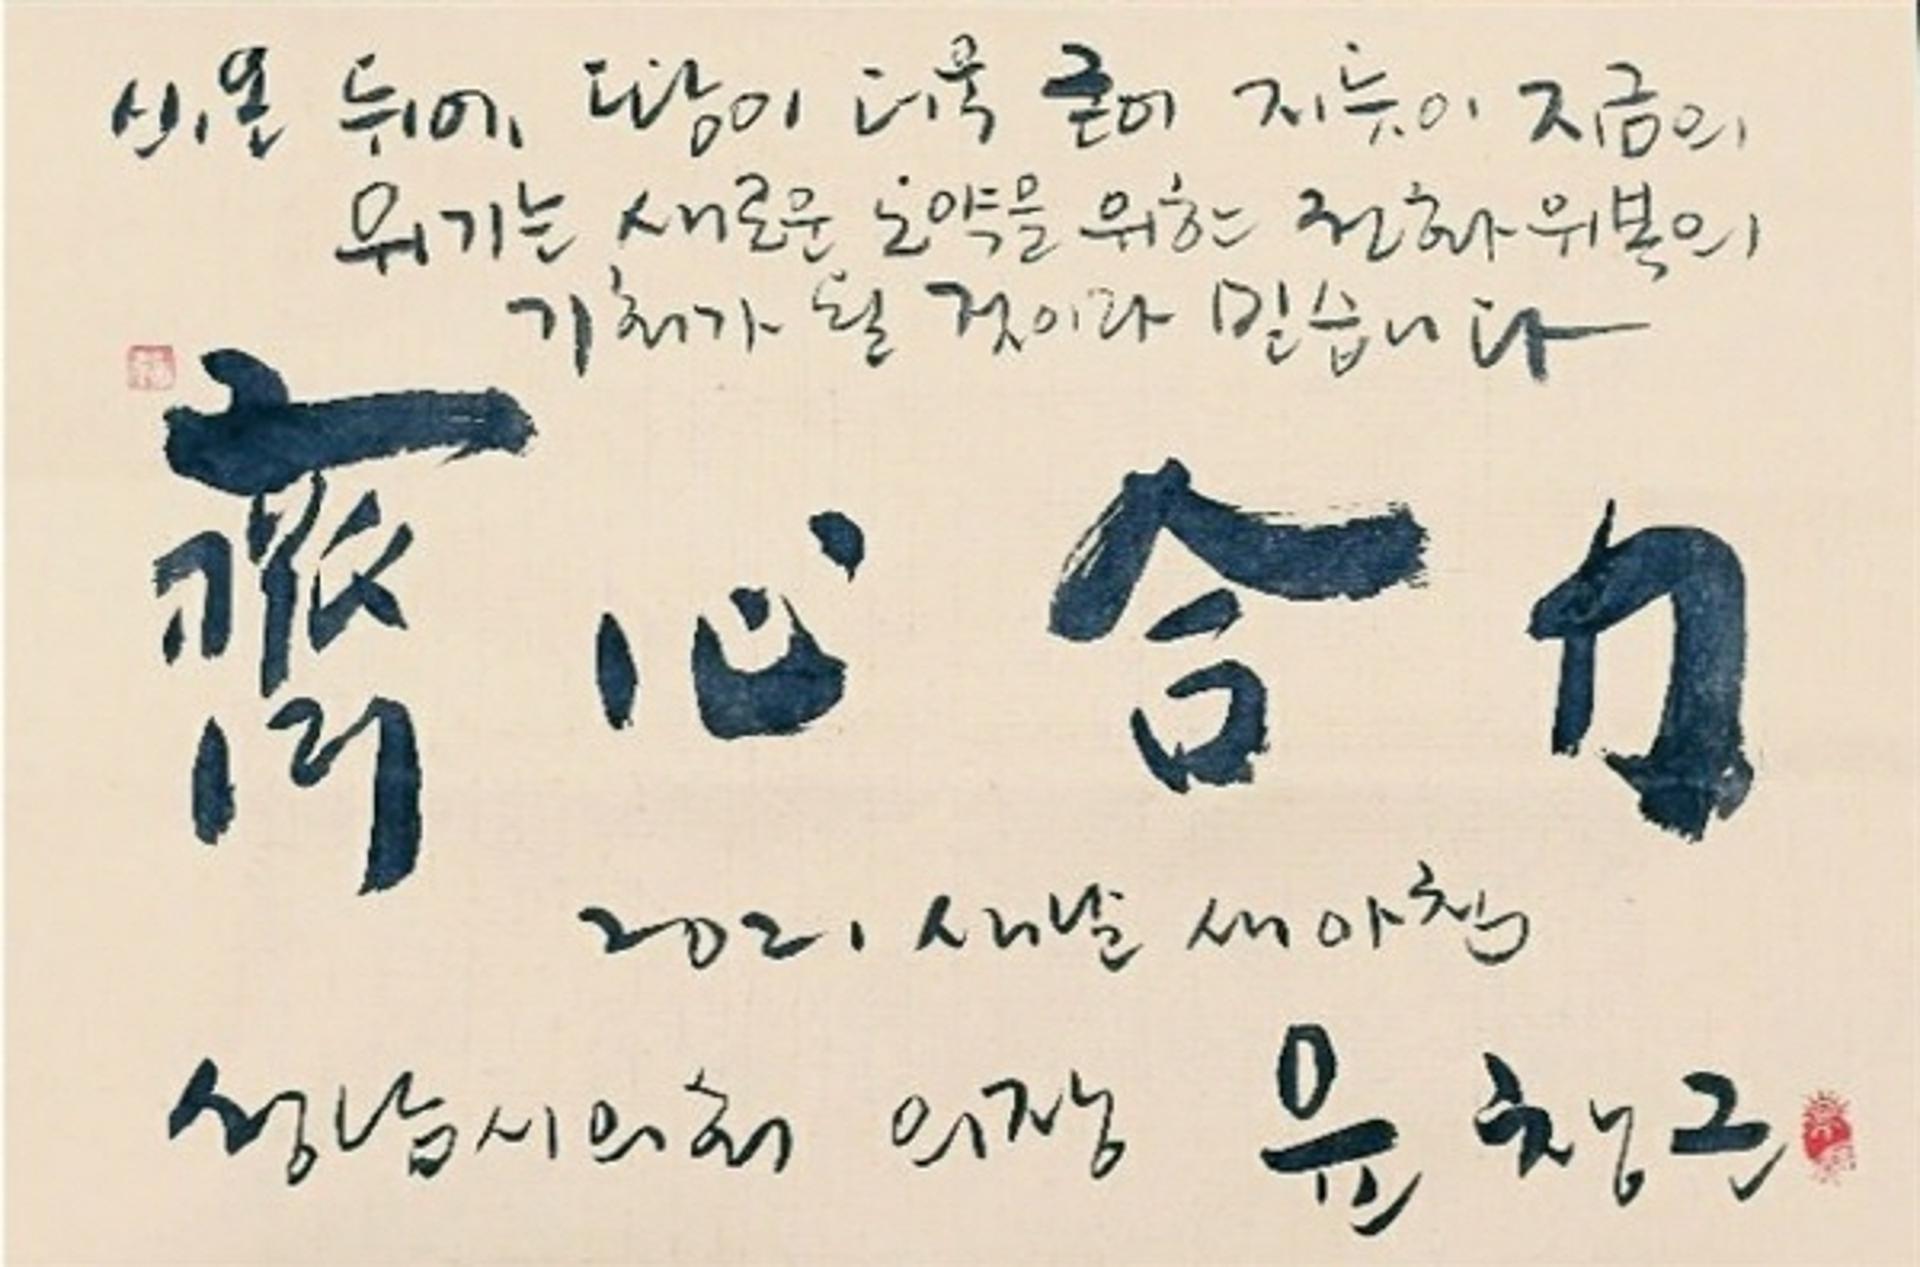 비온 뒤에, 땅이 더욱 굳어 지듯이 지금의
위기는 새로운 도약을 위한 전화위복의
기회가 될 것이라 믿습니다
齊心合力
2021 새날 새아침
성남시의회 의장 윤창근